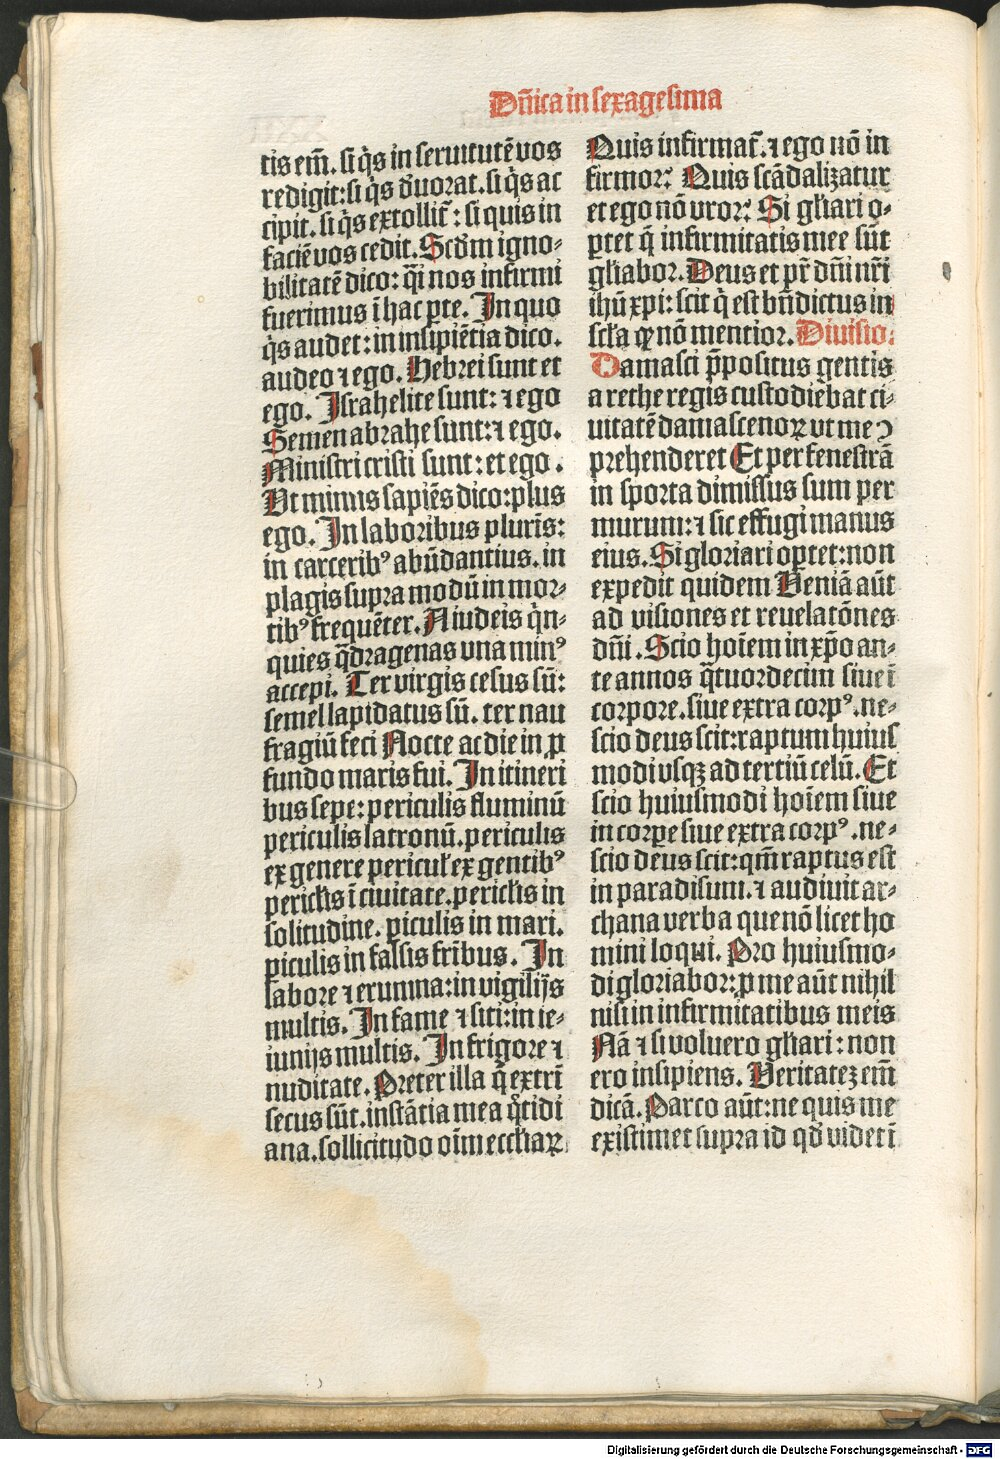 Dn̄ica in sexagesima
tis em̄. si q̇s in seruitutē vos
redigit: si q̇s d̓uorat. si q̇s ac
cipit. si q̇s extollit̄: si quis in
faciē vos cedit. Scd̓m igno⸗
bilitatē dico: q̄i nos infirmi
fuerimus ī hac ꝑte. In quo
q̇s audet: in insipiētia dico.
audeo ⁊ ego. Hebrei sunt et
ego. Israhelite sunt: ⁊ ego
Semen abrahe sunt: ⁊ ego.
Ministri cristi sunt: et ego.
Vt minus sapiēs dico: plus
ego. In laboribus pluris:
in carcerib⁹ abūdantius. in
plagis supra modū in mor⸗
tib⁹ frequēter. A iudeis q̇n⸗
quies q̄dragenas vna min⁹
accepi. Ter virgis cesus sū:
semel lapidatus sū. ter nau
fragiū feci Nocte ac die in ꝓ
fundo maris fui. In itineri
bus sepe: periculis fluminū
periculis latronū. periculis
ex genere pericul̓ ex gentib⁹
perićlis ī ciuitate. perićlis in
solitudine. ꝑiculis in mari.
ꝑiculis in falsis fr̄ibus. In
labore ⁊ erumna: in vigilijs
multis. In fame ⁊ siti: in ie⸗
iunijs multis. In frigore ⁊
nuditate. Preter illa q̄ extrī
secus sūt. instātia mea q̇tidi
ana. sollicitudo oīm eccl̓iaꝝ
Quis infirmat̄. ⁊ ego nō in
firmor: Quis scādalizatur
et ego nō vror: Si gl̓iari o⸗
ꝑtet q̄ infirmitatis mee sūt
gl̓iabor. Deus et pr̄ dn̄i nr̄i
ih̄u xp̄i: scit q̇ est bn̄dictus in
scl̓a ꝙ nō mentior. Diuisio.
Damasci p̄positus gentis
arethe regis custodiebat ci⸗
uitatē damascenoꝝ vt me ꝯ
prehenderet Et per fenestrā
in sporta dimissus sum per
murum: ⁊ sic effugi manus
eius. Si gloriari oꝑtet: non
expedit quidem Veniā aūt
ad visiones et reuelatōnes
dn̄i. Scio hoīem in xp̄o an⸗
te annos q̄tuordecim siue ī
corpore. siue extra corp⁹. ne⸗
scio deus scit: raptum huius
modi vsqꝫ ad tertiū celū. Et
scio huiusmodi hoīem siue
in corꝑe siue extra corp⁹. ne⸗
scio deus scit: qm̄ raptus est
in paradisum. ⁊ audiuit ar⸗
chana verba que nō licet ho
mini loqui. Pro huiusmo⸗
di gloriabor: ꝓ me aūt nihil
nisi in infirmitatibus meis
Nā ⁊ si voluero gl̓iari: non
ero insipiens. Veritatez em̄
dicā. Parco aūt: ne quis me
existimet supra id qd̓ videt ī
Digitalisierung gefördert durch die Deutsche Forschungsgemeinschaft - DFG